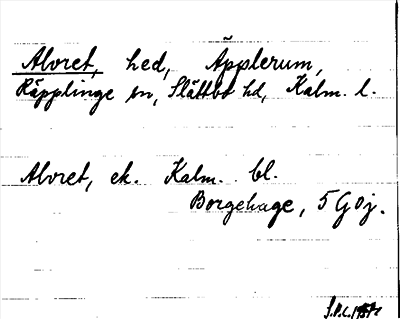 Alvret, hed, Äpplerum,
Räpplinge sn, Slättbo hd, Kalm. l.
Alvret, ek. Kalm. bl.
Borgehage, 5 G 0 j.